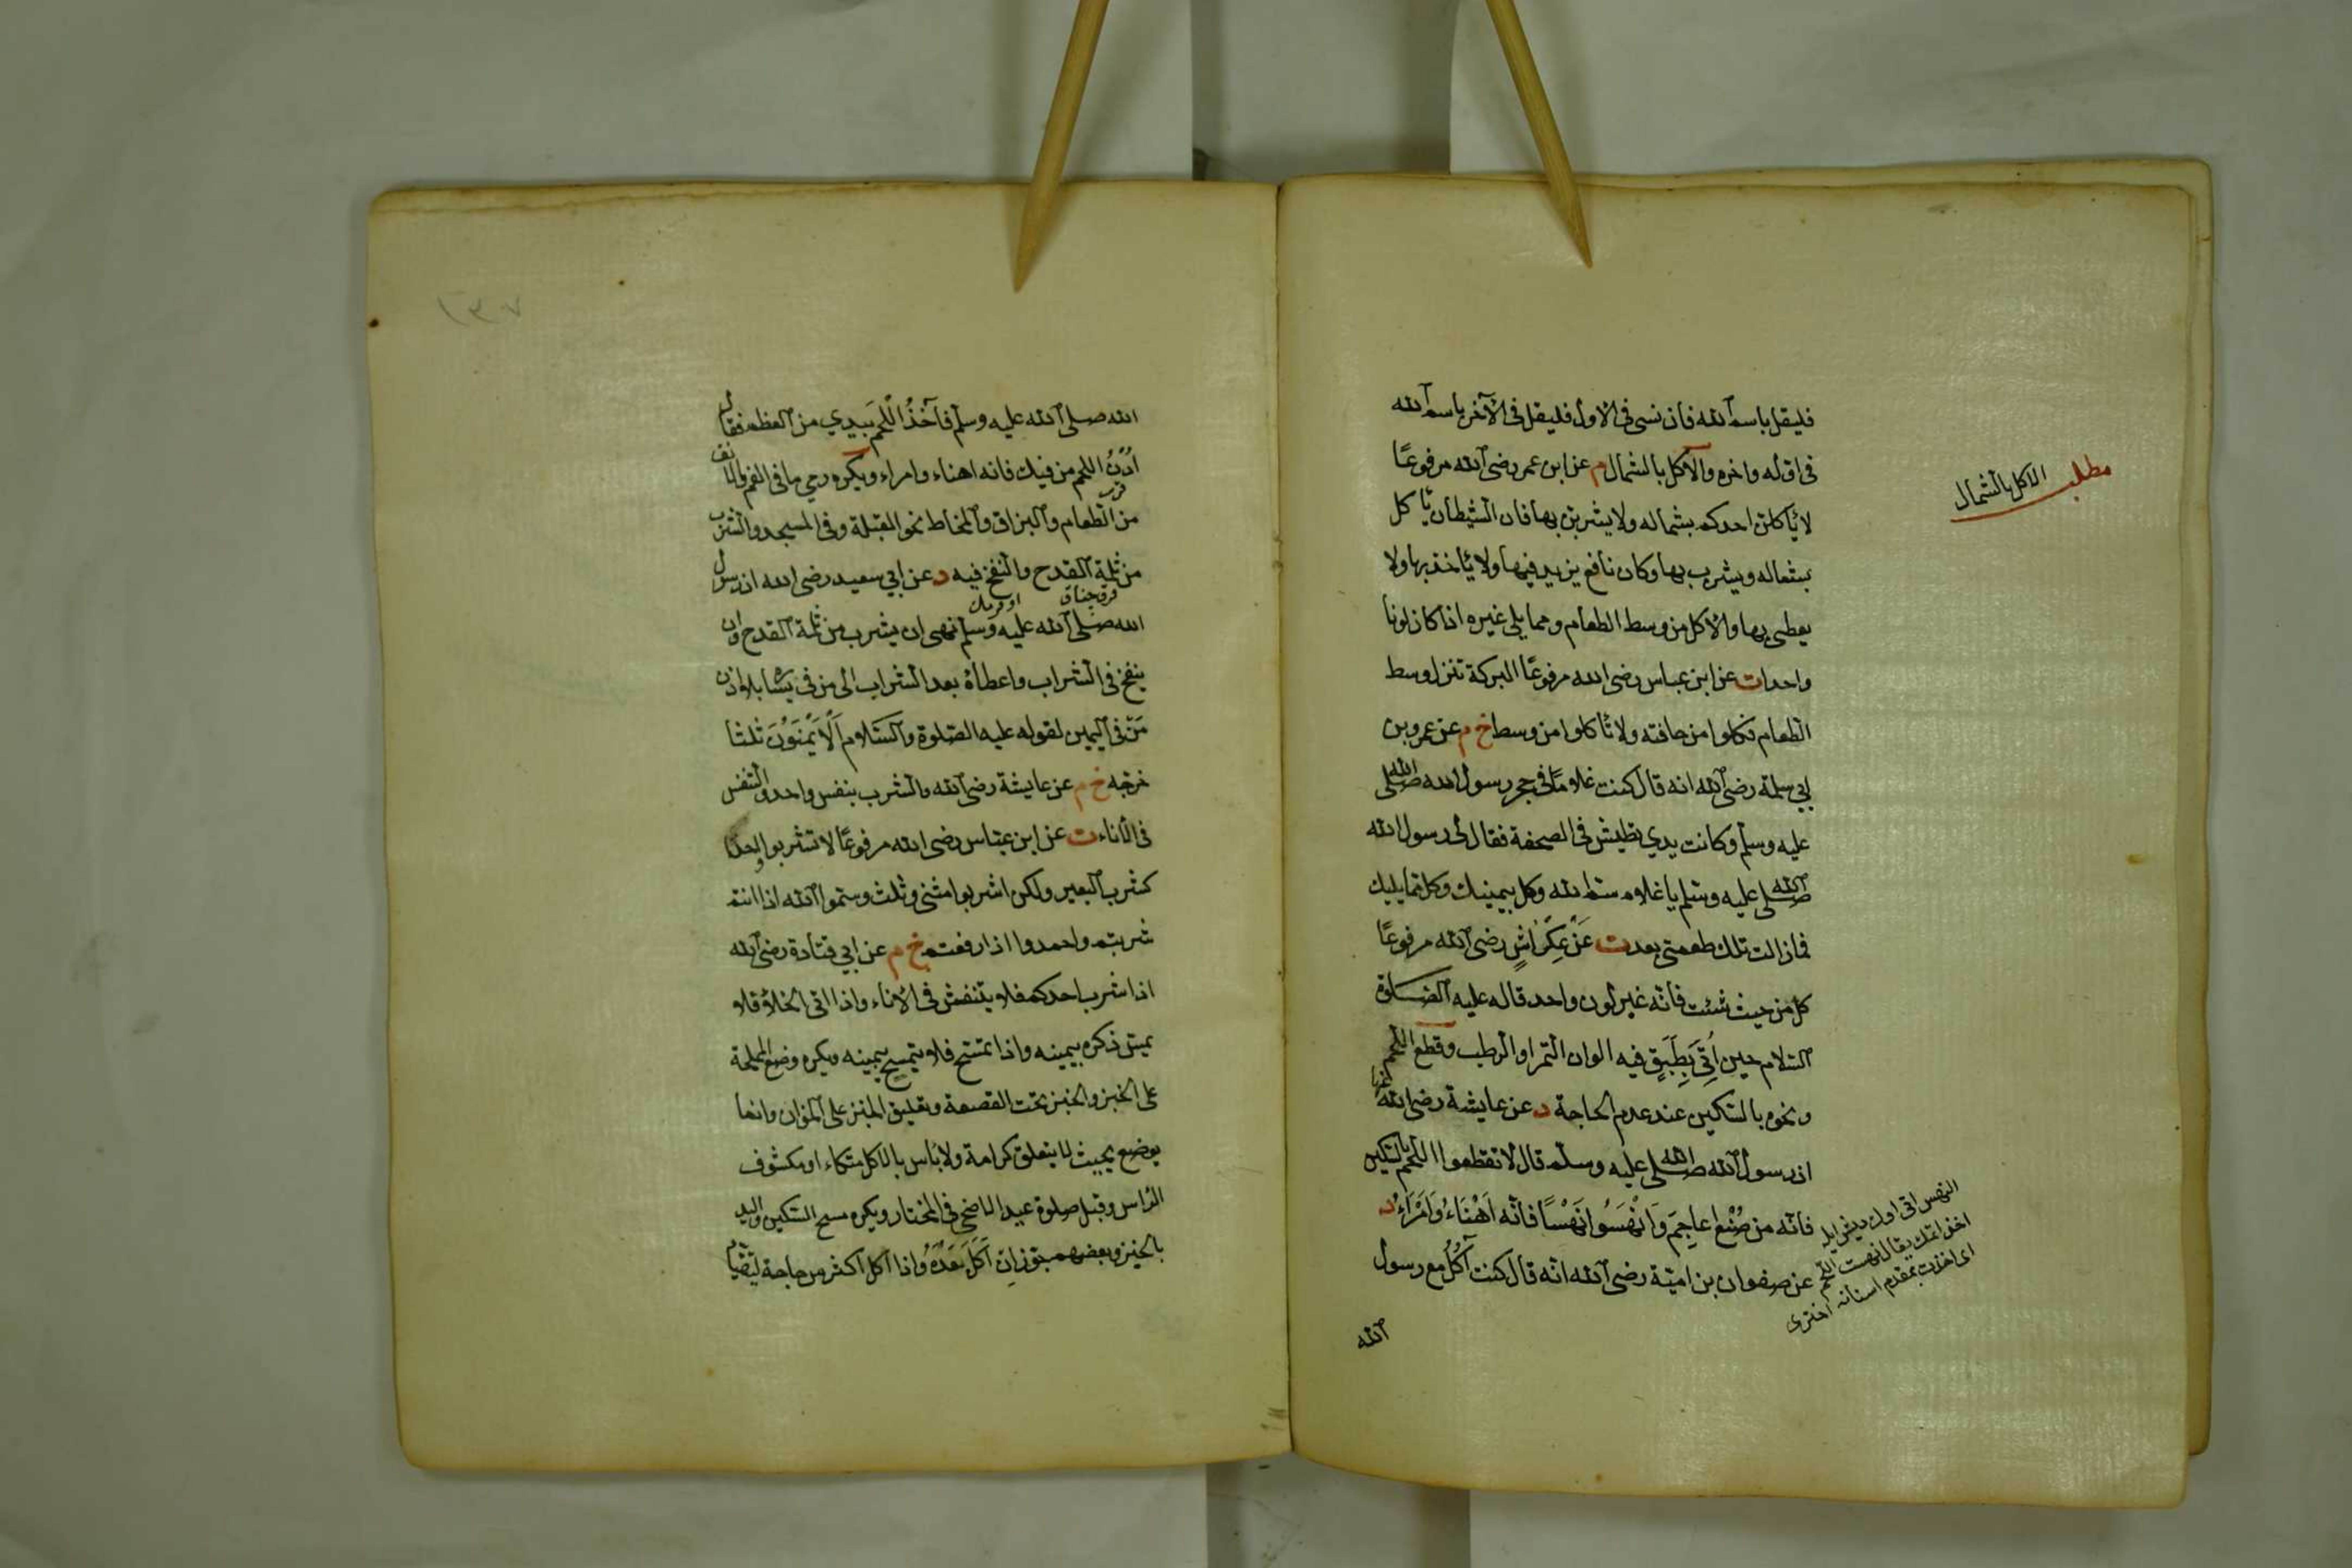 فليقل باسم الله فان نسى فى الاول فليقل فى الآخر باسم الله
فى اوله واخره والاكل بالشمال م عن ابن عمر رضى الله مرفوعًا
مطلب الاكل بالشمال
لا ياكلن احدكم بشماله ولا يشربن بها فان الشيطان ياكل
بشماله ويشرب بها وكان نافع يزيد فيها ولا ياخذ بها ولا
يعطى بها والاكل من وسط الطعام ومما يلى غيره اذا كان لونا
واحدا ت عن ابن عباس رضى الله مرفوعًا البركة تنزل وسط
الطعام فكلوا من حافته ولا تاكلوا من وسط خ م عن عمرو بن
ابي سلمة رضى الله انه قال كنت غلامًا فى حجر رسول الله صلى الله
عليه وسلم وكانت يدي تطيش فى الصحفة فقال لى رسول الله
صلى الله عليه وسلم يا غلام سم الله وكل بيمينك وكل مما يليك
فما زالت تلك طعمتى بعد ت عَنْ عِكْرَاشٍ رضى الله مرفوعًا
كل من حيث شئت فانه غير لون واحد قاله عليه الصلوة
السلام حين اُتِىَ بِطَبَقٍ فيه الوان التمر او الرطب وقطع اللحم
ونحوه بالسكين عند عدم الحاجة د عن عايشة رضى الله عنها
ان رسول الله صلى الله عليه وسلم قال لا تقطعوا اللحم بالسكين
فانه من صُنْعِ اعاجِمَ وَانْهَسُوا نَهْسًا فانه اَهْنَاءُ وَاَمْرَاءُ د
عن صفوان بن امية رضى الله انه قال كنت آكُلُ مع رسول
النهس اتى اوك ديش ايله
اخذ اتمك يقال نهست اللحم
اى اخذت بمقدم اسنانه اخترى
الله
١٣٧
الله صلى الله عليه وسلم فآخُذُ اللحم بيدي من العظم فقال
اُدْنُ اللحم من فيك فانه اهناء وامراء ويكره رمي ما فى الفم والانف
من الطعام والبزاق والمخاط نحو القبلة وفى المسجد والشرب
من ثلمة القدح والنفخ فيه د عن ابي سعيد رضى الله ان رسول
الله صلى الله عليه وسلم نهى ان يشرب من ثلمة القدح وان
ينفخ فى الشراب واعطاؤه بعد الشراب الى من فى يساره بلا اذن
مَنْ فى اليمين لقوله عليه الصلوة والسلام اَلاَيْمَنُونَ ثلثا
خرجه خ م عن عايشة رضى الله والشرب بنفس واحد والتنفس
فى الاناء ت عن ابن عباس رضى الله مرفوعًا لا تشربوا واحدا
كشرب البعير ولكن اشربوا مثنى وثلث وسموا الله اذا انتم
شربتم واحمدوا اذا رفعتم خ م عن ابي قتادة رضى الله
اذا شرب احدكم فلا يتنفس فى الاناء واذا اتى الخلاء فلا
يمس ذكره بيمينه واذا تمسح فلا يتمسح بيمينه ويكره وضع المملحة
على الخبز والخبز تحت القصعة وتعليق الخبز على الخوان وانما
يوضع بحيث لا يتعلق كرامة ولا باس بالاكل متكاء او مكشوف
الراس وقبل صلوة عيد الاضحى فى المختار ويكره مسح السكين واليد
بالخبز وبعضهم جوز ان اَكَلَ بَعْدَهُ واذا اكل اكثر من حاجة ليتقيأ